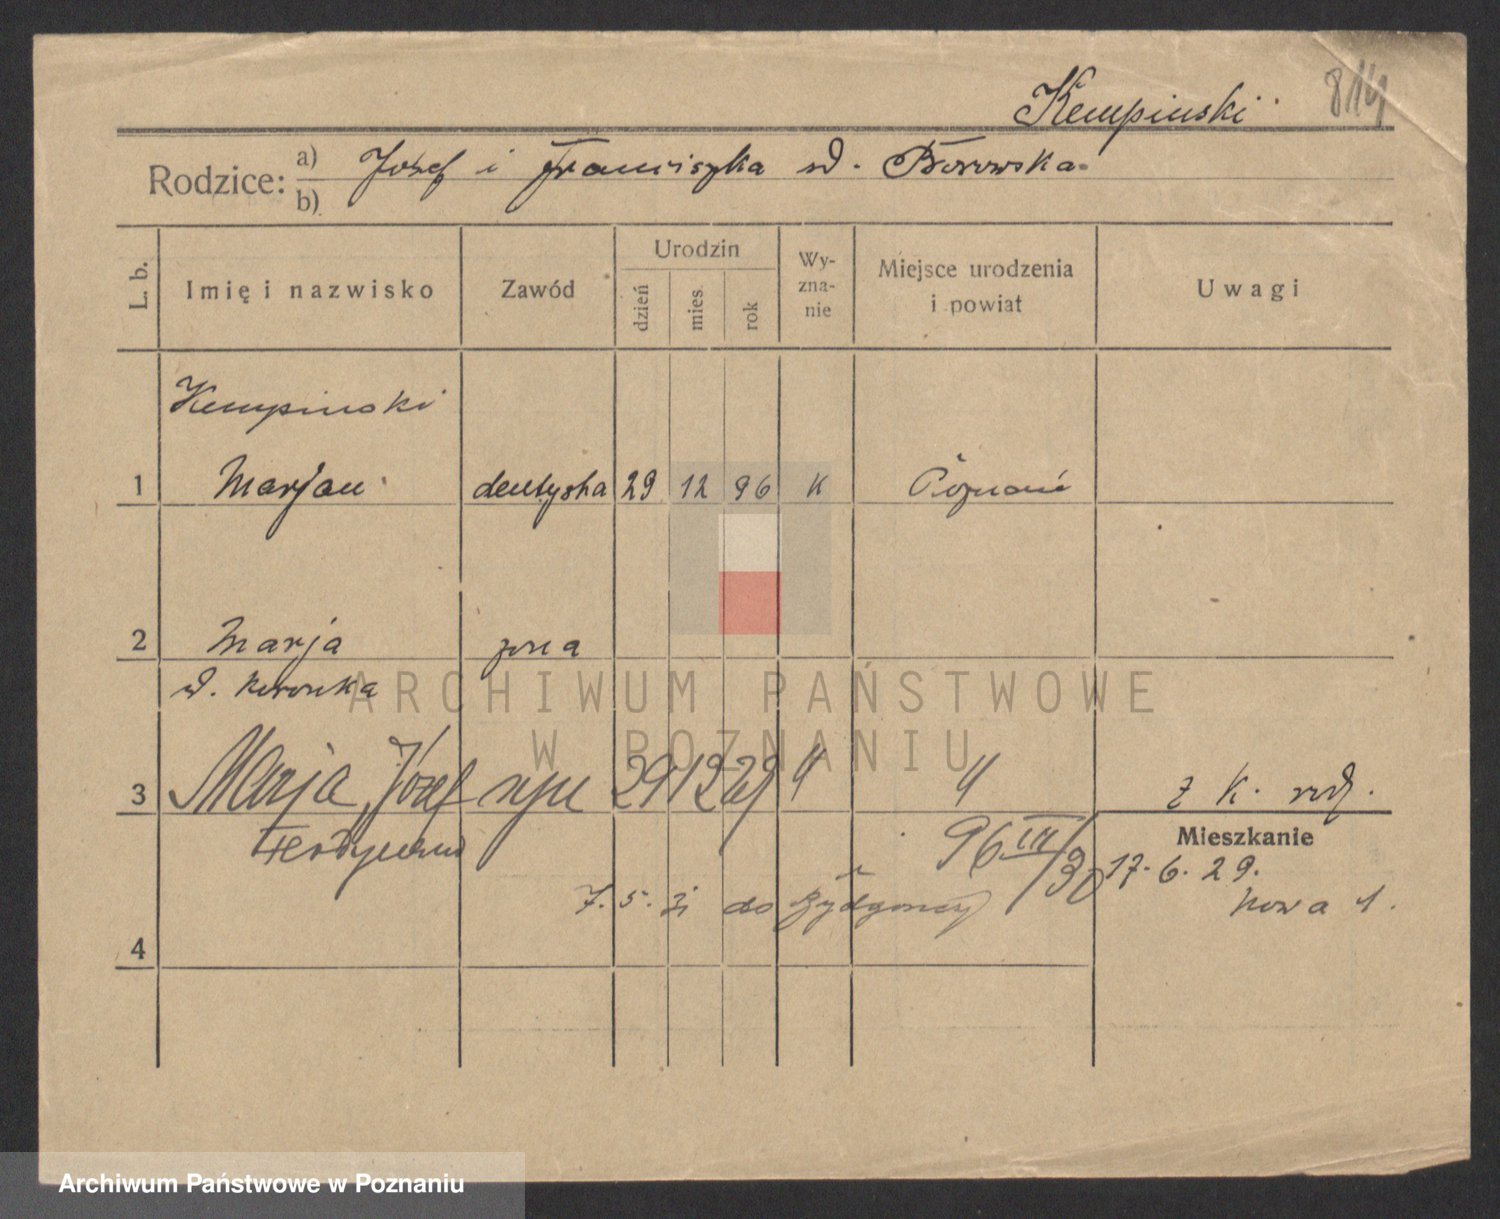 Kempinski
814
Rodzice: a) Józef i Franciszka w. Borowska
b)
L. b. Imię i nazwisko Zawód Urodzin dzień mies. rok Wy-zna-nie Miejsce urodzenia i powiat Uwagi
Kempinski
1 Marjan dentysta 29 12 96 K Poznań
2 Marja żona
3 Marja, Józef syn 29 12 29 " " z K.
Ferdynand
96 III/30
Mieszkanie
17. 6. 29.
7. 5. 31 do Bydgoszczy
Nowa 1.
4
ARCHIWUM PAŃSTWOWE
W POZNANIU
Archiwum Państwowe w Poznaniu